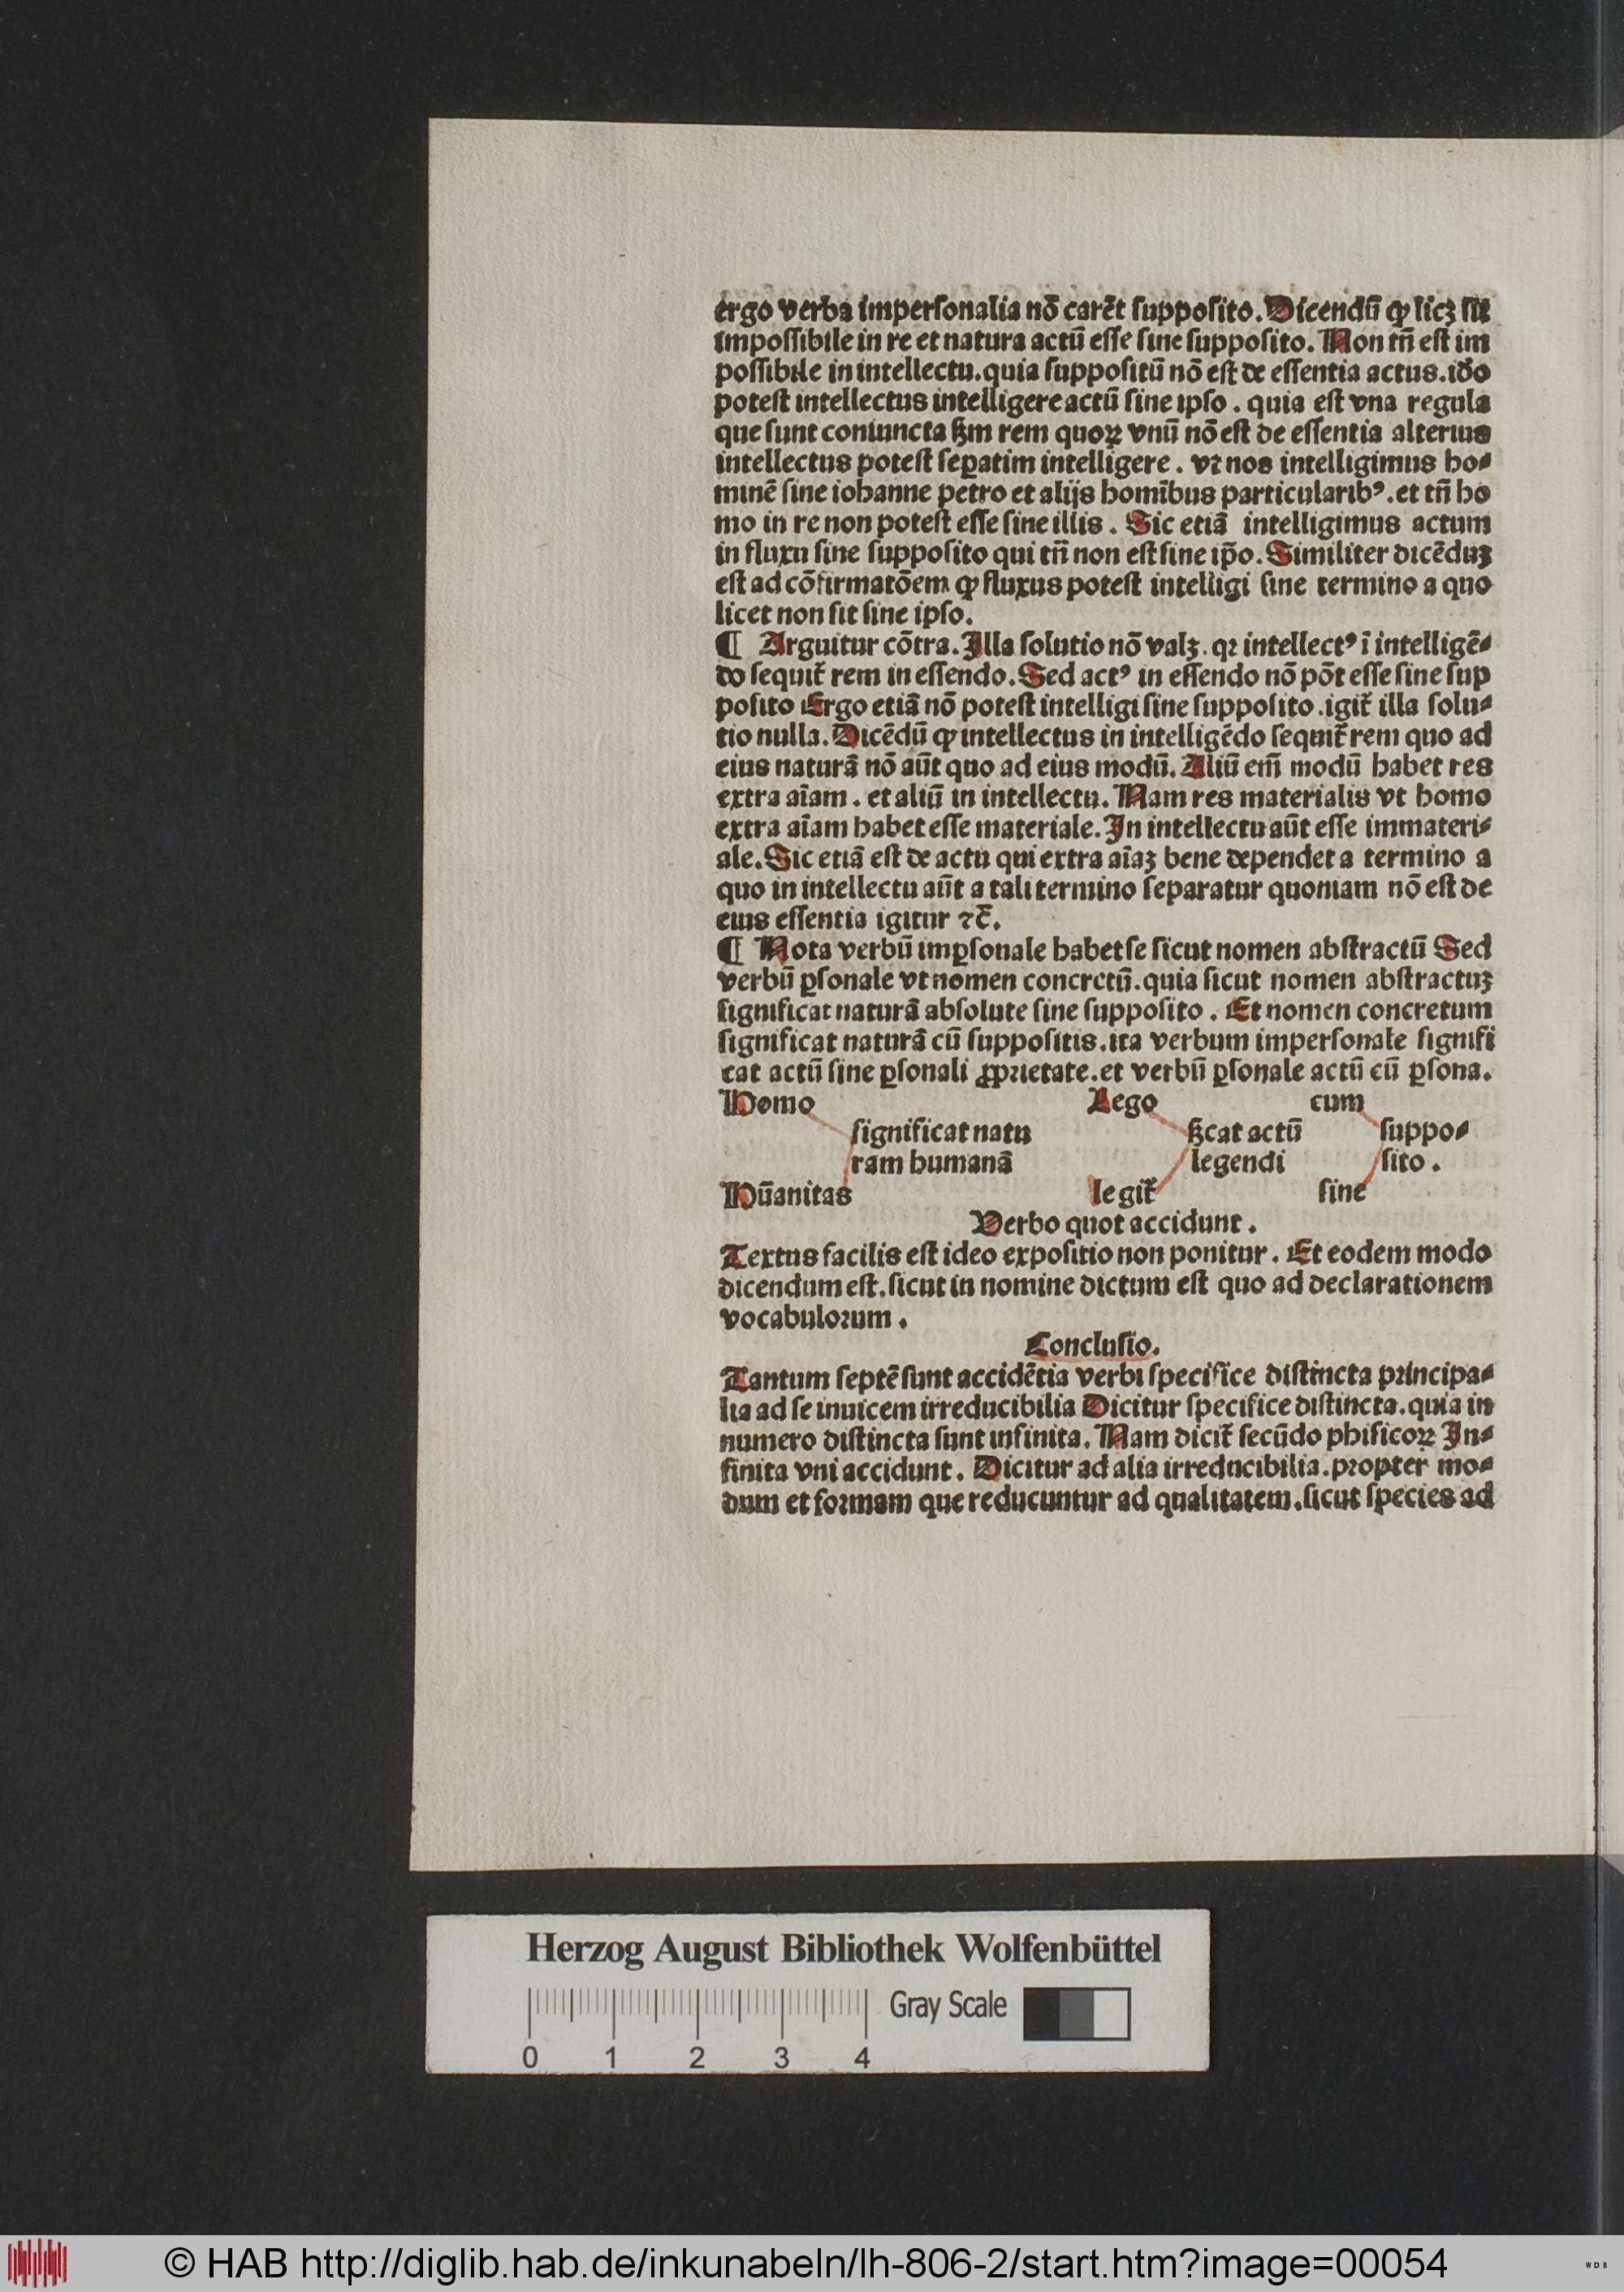 ergo verba impersonalia nō carēt supposito. Dicendū ꝙ licꝫ sit
impossibile in re et natura actū esse sine supposito. Non tn̄ est im
possibile in intellectu. quia suppositū nō est de essentia actus. iđo
potest intellectus intelligere actū sine ipso. quia est vna regula
que sunt coniuncta ẜm rem quoꝝ vnū nō est de essentia alterius
intellectus potest seꝑatim intelligere. vt nos intelligimus ho⸗
minē sine iohanne petro et alijs homībus particularibꝰ. et tn̄ ho
mo in re non potest esse sine illis. Sic etiā intelligimus actum
in fluxu sine supposito qui tn̄ non est sine ip̄o. Similiter dicēduꝫ
est ad cōfirmatōem ꝙ fluxus potest intelligi sine termino a quo
licet non sit sine ipso.
¶ Arguitur cōtra. Illa solutio nō valꝫ. qꝛ intellectꝰ ī intelligē⸗
do sequit̄ rem in essendo. Sed actꝰ in essendo nō pōt esse sine sup
posito Ergo etiā nō potest intelligi sine supposito. igit̄ illa solu⸗
tio nulla. Dicēdū ꝙ intellectus in intelligēdo sequit̄ rem quo ad
eius naturā nō aūt quo ad eius modū. Aliū em̄ modū habet res
extra aīam. et aliū in intellectu. Nam res materialis vt homo
extra aīam habet esse materiale. In intellectu aūt esse immateri⸗
ale. Sic etiā est de actu qui extra aīaꝫ bene dependet a termino a
quo in intellectu aūt a tali termino separatur quoniam nō est de
eius essentia igitur ⁊c̄.
¶ Nota verbū imꝑsonale habet se sicut nomen abstractū Sed
verbū ꝑsonale vt nomen concretū. quia sicut nomen abstractuꝫ
significat naturā absolute sine supposito. Et nomen concretum
significat naturā cū suppositis. ita verbum impersonale signifi
cat actū sine ꝑsonali ꝓprietate. et verbū ꝑsonale actū cū ꝑsona.
Homo Lego cum
significat natu ẜcat actū suppo⸗
ram humanā legendi sito.
Hūanitas legit̄ sine
Verbo quot accidunt.
Textus facilis est ideo expositio non ponitur. Et eodem modo
dicendum est. sicut in nomine dictum est quo ad declarationem
vocabulorum.
Conclusio.
Tantum septē sunt accidētia verbi specifice distincta principa⸗
lia ad se inuicem irreducibilia Dicitur specifice distincta. quia in
numero distincta sunt infinita. Nam dicit̄ secūdo phisicoꝝ In⸗
finita vni accidunt. Dicitur ad alia irreducibilia. propter mo⸗
dum et formam que reducuntur ad qualitatem. sicut species ad
Herzog August Bibliothek Wolfenbüttel
Gray Scale
0 1 2 3 4
© HAB http://diglib.hab.de/inkunabeln/lh-806-2/start.htm?image=00054
WDB